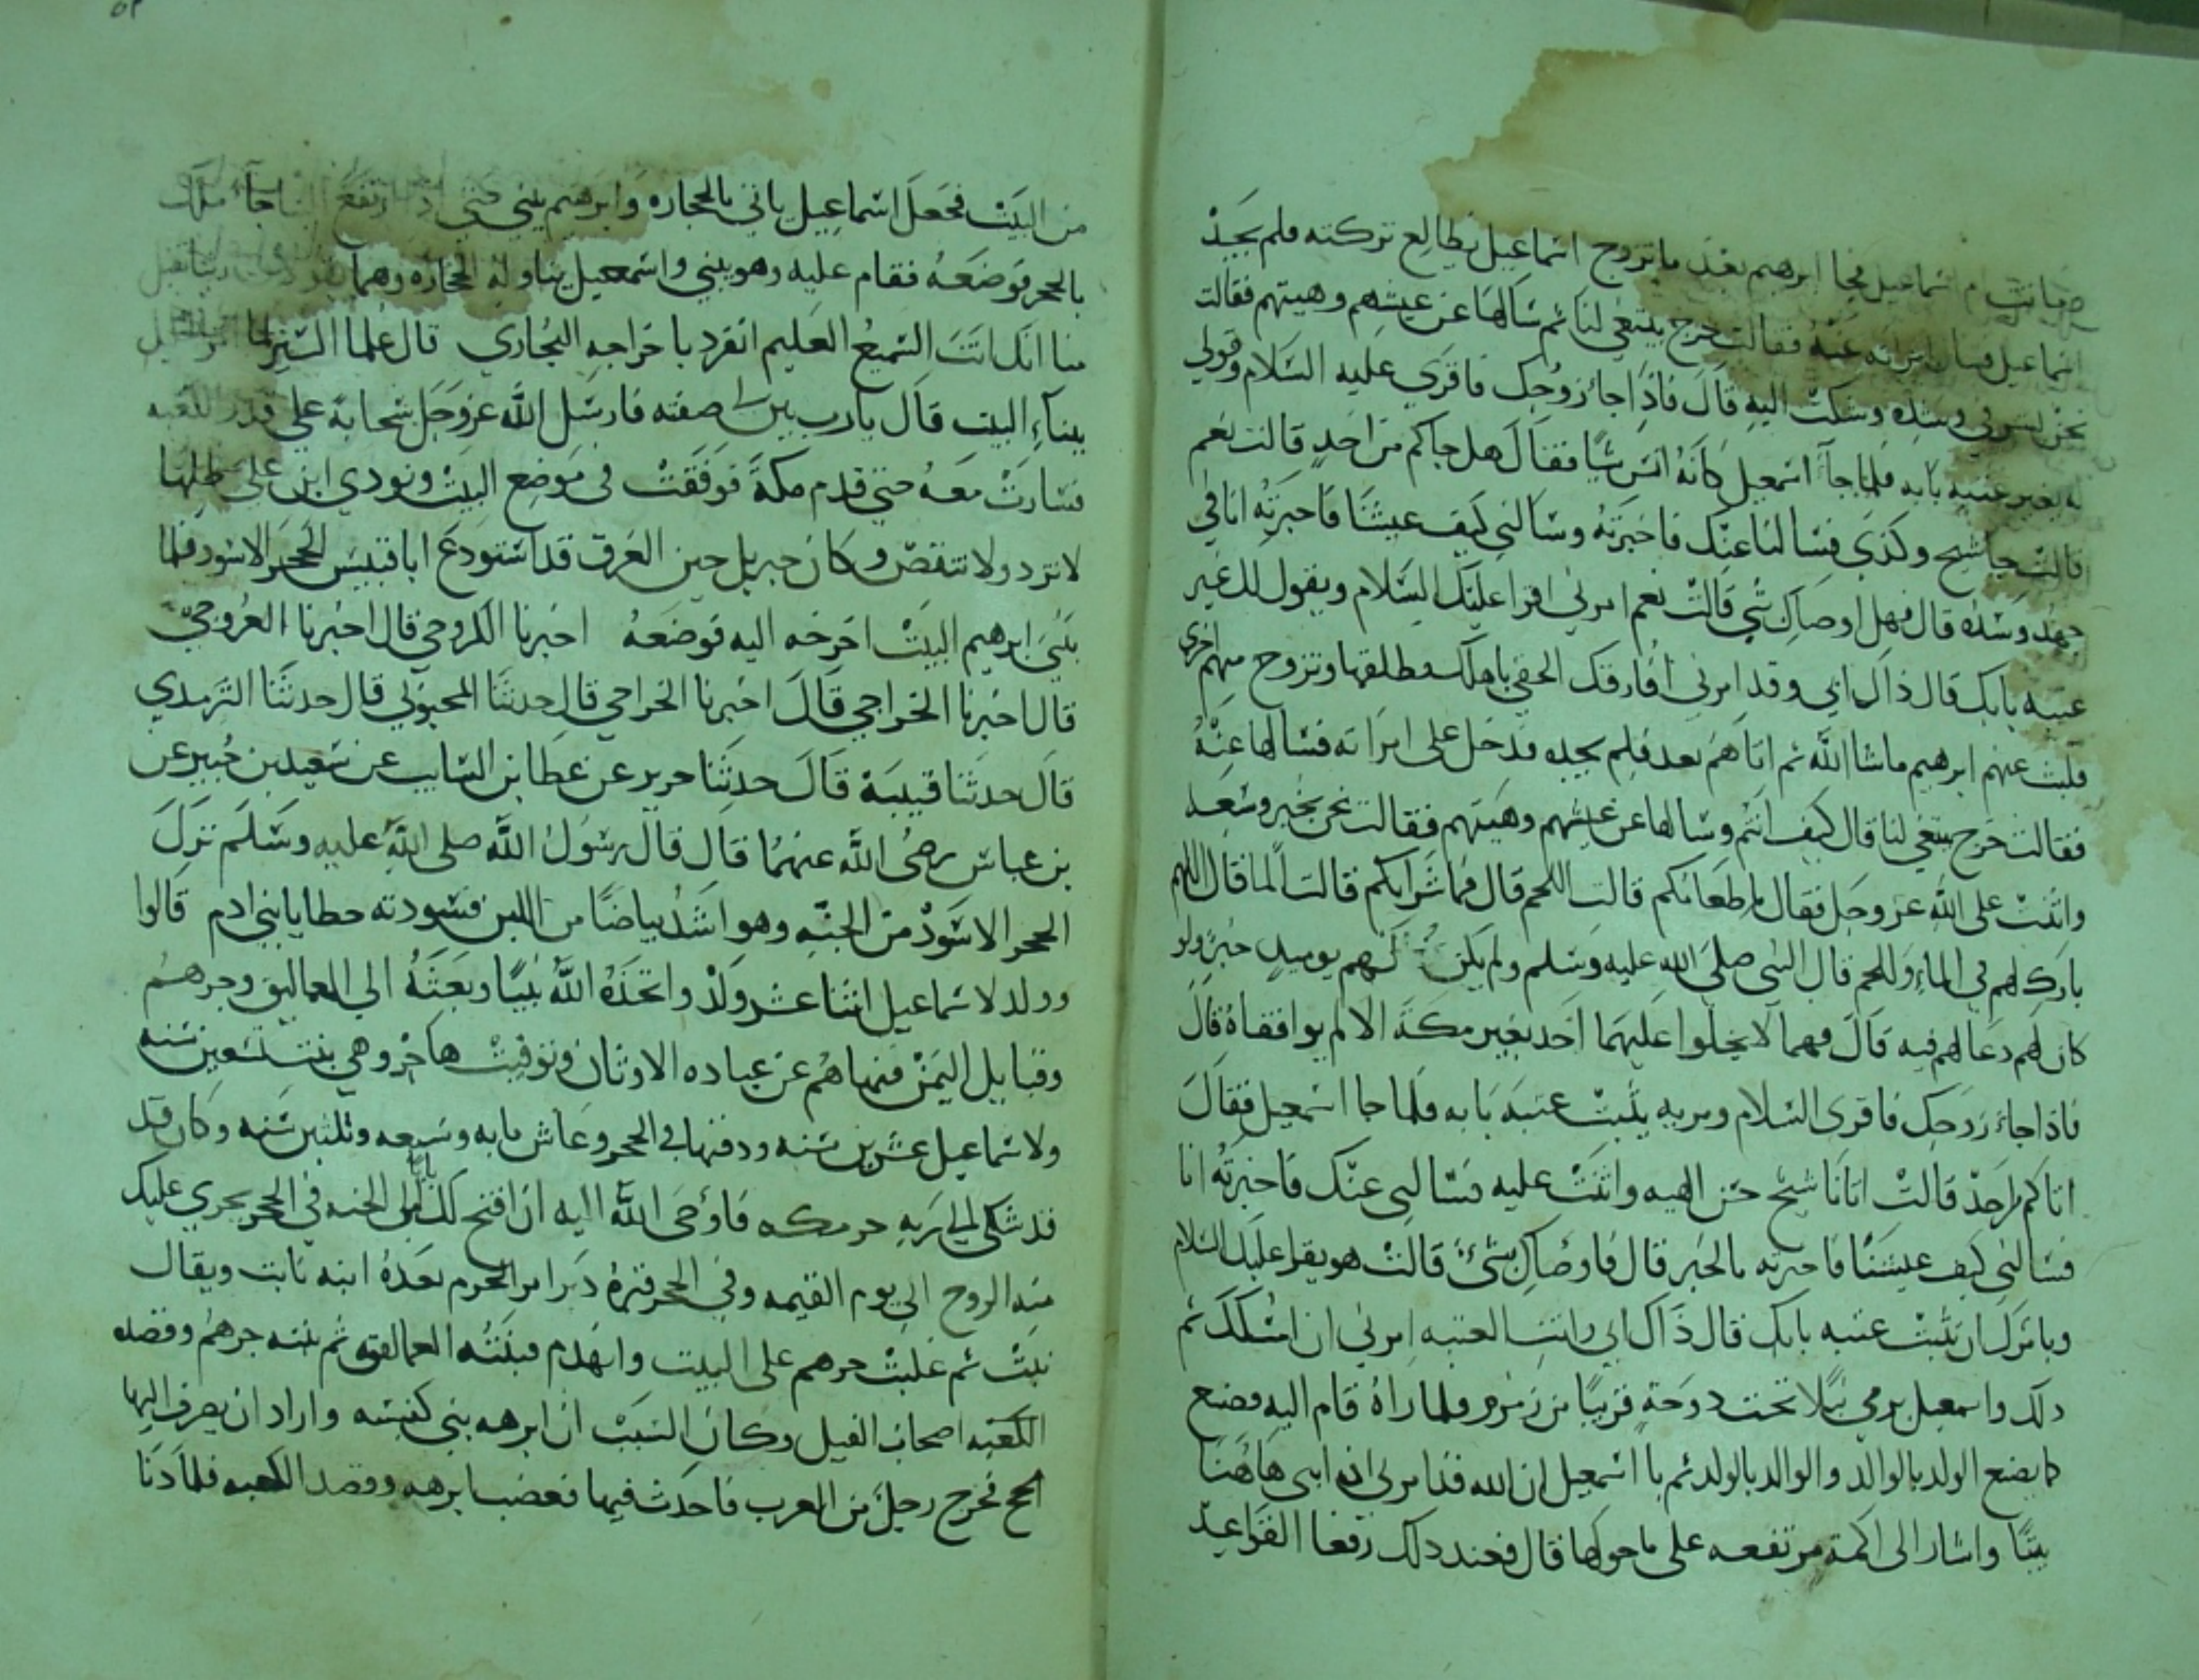 وماتت ام اسماعيل فجا ابرهيم بعد ما تزوج اسماعيل يطالع تركته فلم يجد
اسماعيل فسال امراته عنه فقالت خرج يبتغي لنا ثم سالها عن عيشهم وهيتهم فقالت
نحن بشر في وشده وشكت اليه قال فاذا جا زوجك فاقري عليه السلام وقولي
له يغير عتبه بابه فلما جآ اسمعيل كانه انس شيا فقال هل جاكم من احد قالت نعم
قالت جا شيخ وكذى فسالنا عنك فاخبرته وسالني كيف عيشنا فاخبرته انا في
جهد وشده قال فهل اوصاك شي قالت نعم امرني اقرا عليك السلام ويقول لك غير
عتبه بابك قال ذاك ابي وقد امرني افارقك الحقي باهلك وطلقها وتزوج منهم اخرى
فلبث عنهم ابرهيم ما شا الله ثم اتاهم بعد فلم يجده فدخل على امراته فسالها عنه
فقالت خرج يبتغي لنا قال كيف انتم وسالها عن عيشهم وهيتهم فقالت نحن بخير وسعه
واثنت على الله عز وجل فقال ما طعامكم قالت اللحم قال فما شرابكم قالت الما قال اللهم
بارك لهم في الماء واللحم قال النبي صلى الله عليه وسلم ولم يكن لهم يوميد حب ولو
كان لهم دعا لهم فيه قال فهما لا يخلوا عليهما احد بغير مكة الا لم يوافقاه قال
فاذا جاء زوجك فاقري السلام ومريه يثبت عتبه بابه فلما جا اسمعيل فقال
اتاكم من احد قالت اتانا شيخ حسن الهيه واثنت عليه فسالني عنك فاخبرته انا
فسالني كيف عيشنا فاخبرته بالخير قال فاوصاك بشئ قالت هو يقرا عليك السلام
ويامرك ان تثبت عتبه بابك قال ذاك ابي وانت العتبه امرني ان امسكك ثم
دلك واسمعيل يبري نبلا تحت دوحة قريبا من زمزم فلما راه قام اليه فصنع
كما يصنع الولد بالوالد والوالد بالولد ثم يا اسمعيل ان الله قد امرني ان ابني هاهنا
بيتا واشار الى اكمة مرتفعه على ما حولها قال فعند دلك رفعا القواعد
من البيت فجعل اسماعيل ياتي بالحجاره وابرهيم يبني حتى اذا ارتفع البنا جآ
بالحجر فوضعه فقام عليه وهو يبني واسمعيل يناوله الحجاره وهما يقولان ربنا تقبل
منا انك انت السميع العليم انفرد باخراجه البخاري قال علما السير لما
ببناء البيت قال يا رب بين لي صفته فارسل الله عز وجل سحابة على قدر الكعبه
فسارت معه حتى قدم مكة فوقفت في موضع البيت ونودي ابن على ظلها
لا تزد ولا تنقص وكان جبريل حين الغرق قد استودع ابا قبيس الحجر الاسود فلما
بنى ابرهيم البيت اخرجه اليه فوضعه اخبرنا الكروخي قال اخبرنا الغورجي
قال اخبرنا الخراجي قال اخبرنا الخراجي قال حدثنا المحبوبي قال حدثنا الترمدي
قال حدثنا قتيبة قال حدثنا جرير عن عطا بن السايب عن سعيد بن جبير عن
بن عباس رضي الله عنهما قال قال رسول الله صلى الله عليه وسلم نزل
الحجر الاسود من الجنه وهو اشد بياضا من اللبن فسودته خطايا بني ادم قالوا
وولد لاسماعيل اثنا عشر ولد واتخذه الله نبيا وبعثه الي العماليق وجرهم
وقبايل اليمن فنهاهم عن عباده الاوثان وتوفيت هاجر وهي بنت تسعين سنه
ولاسماعيل عشرين سنه ودفنها في الحجر وعاش مايه وسبعه وثلثين سنه وكان قد
قد شكى الى ربه حر مكه فاوحى الله اليه ان افتح لك بابا من الجنه في الحجر يجري عليك
منه الروح الي يوم القيمه وفي الحجر قبره دبر امر الحرم بعده ابنه نابت ويقال
نبت ثم غلبت جرهم على البيت وانهدم فبنته العمالقه ثم بنته جرهم وقصد
الكعبه اصحاب الفيل وكان السبب ان ابرهه بني كنيسه واراد ان يصرف اليها
الحج فخرج رجل من العرب فاحدث فيها فغضب ابرهه وقصد الكعبه فلما دنا